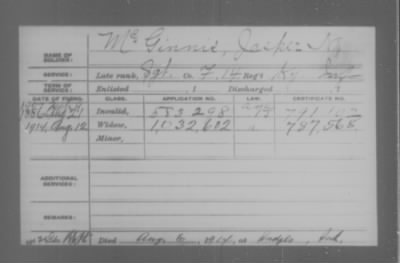 NAME OF SOLDIER: McGinnis, Jasper N.
SERVICE: Late rank, Sgt. Co. F, 14 Reg't Ky Inf
TERM OF SERVICE: Enlisted , 1 Discharged , 1
DATE OF FILING. CLASS. APPLICATION NO. LAW. CERTIFICATE NO.
1886, Aug 27 Invalid, 583298
1914, Aug. 12 Widow, 1032,602 787,568
Minor,
ADDITIONAL SERVICES:
REMARKS:
Died Aug. 6, 1914, at Ind.